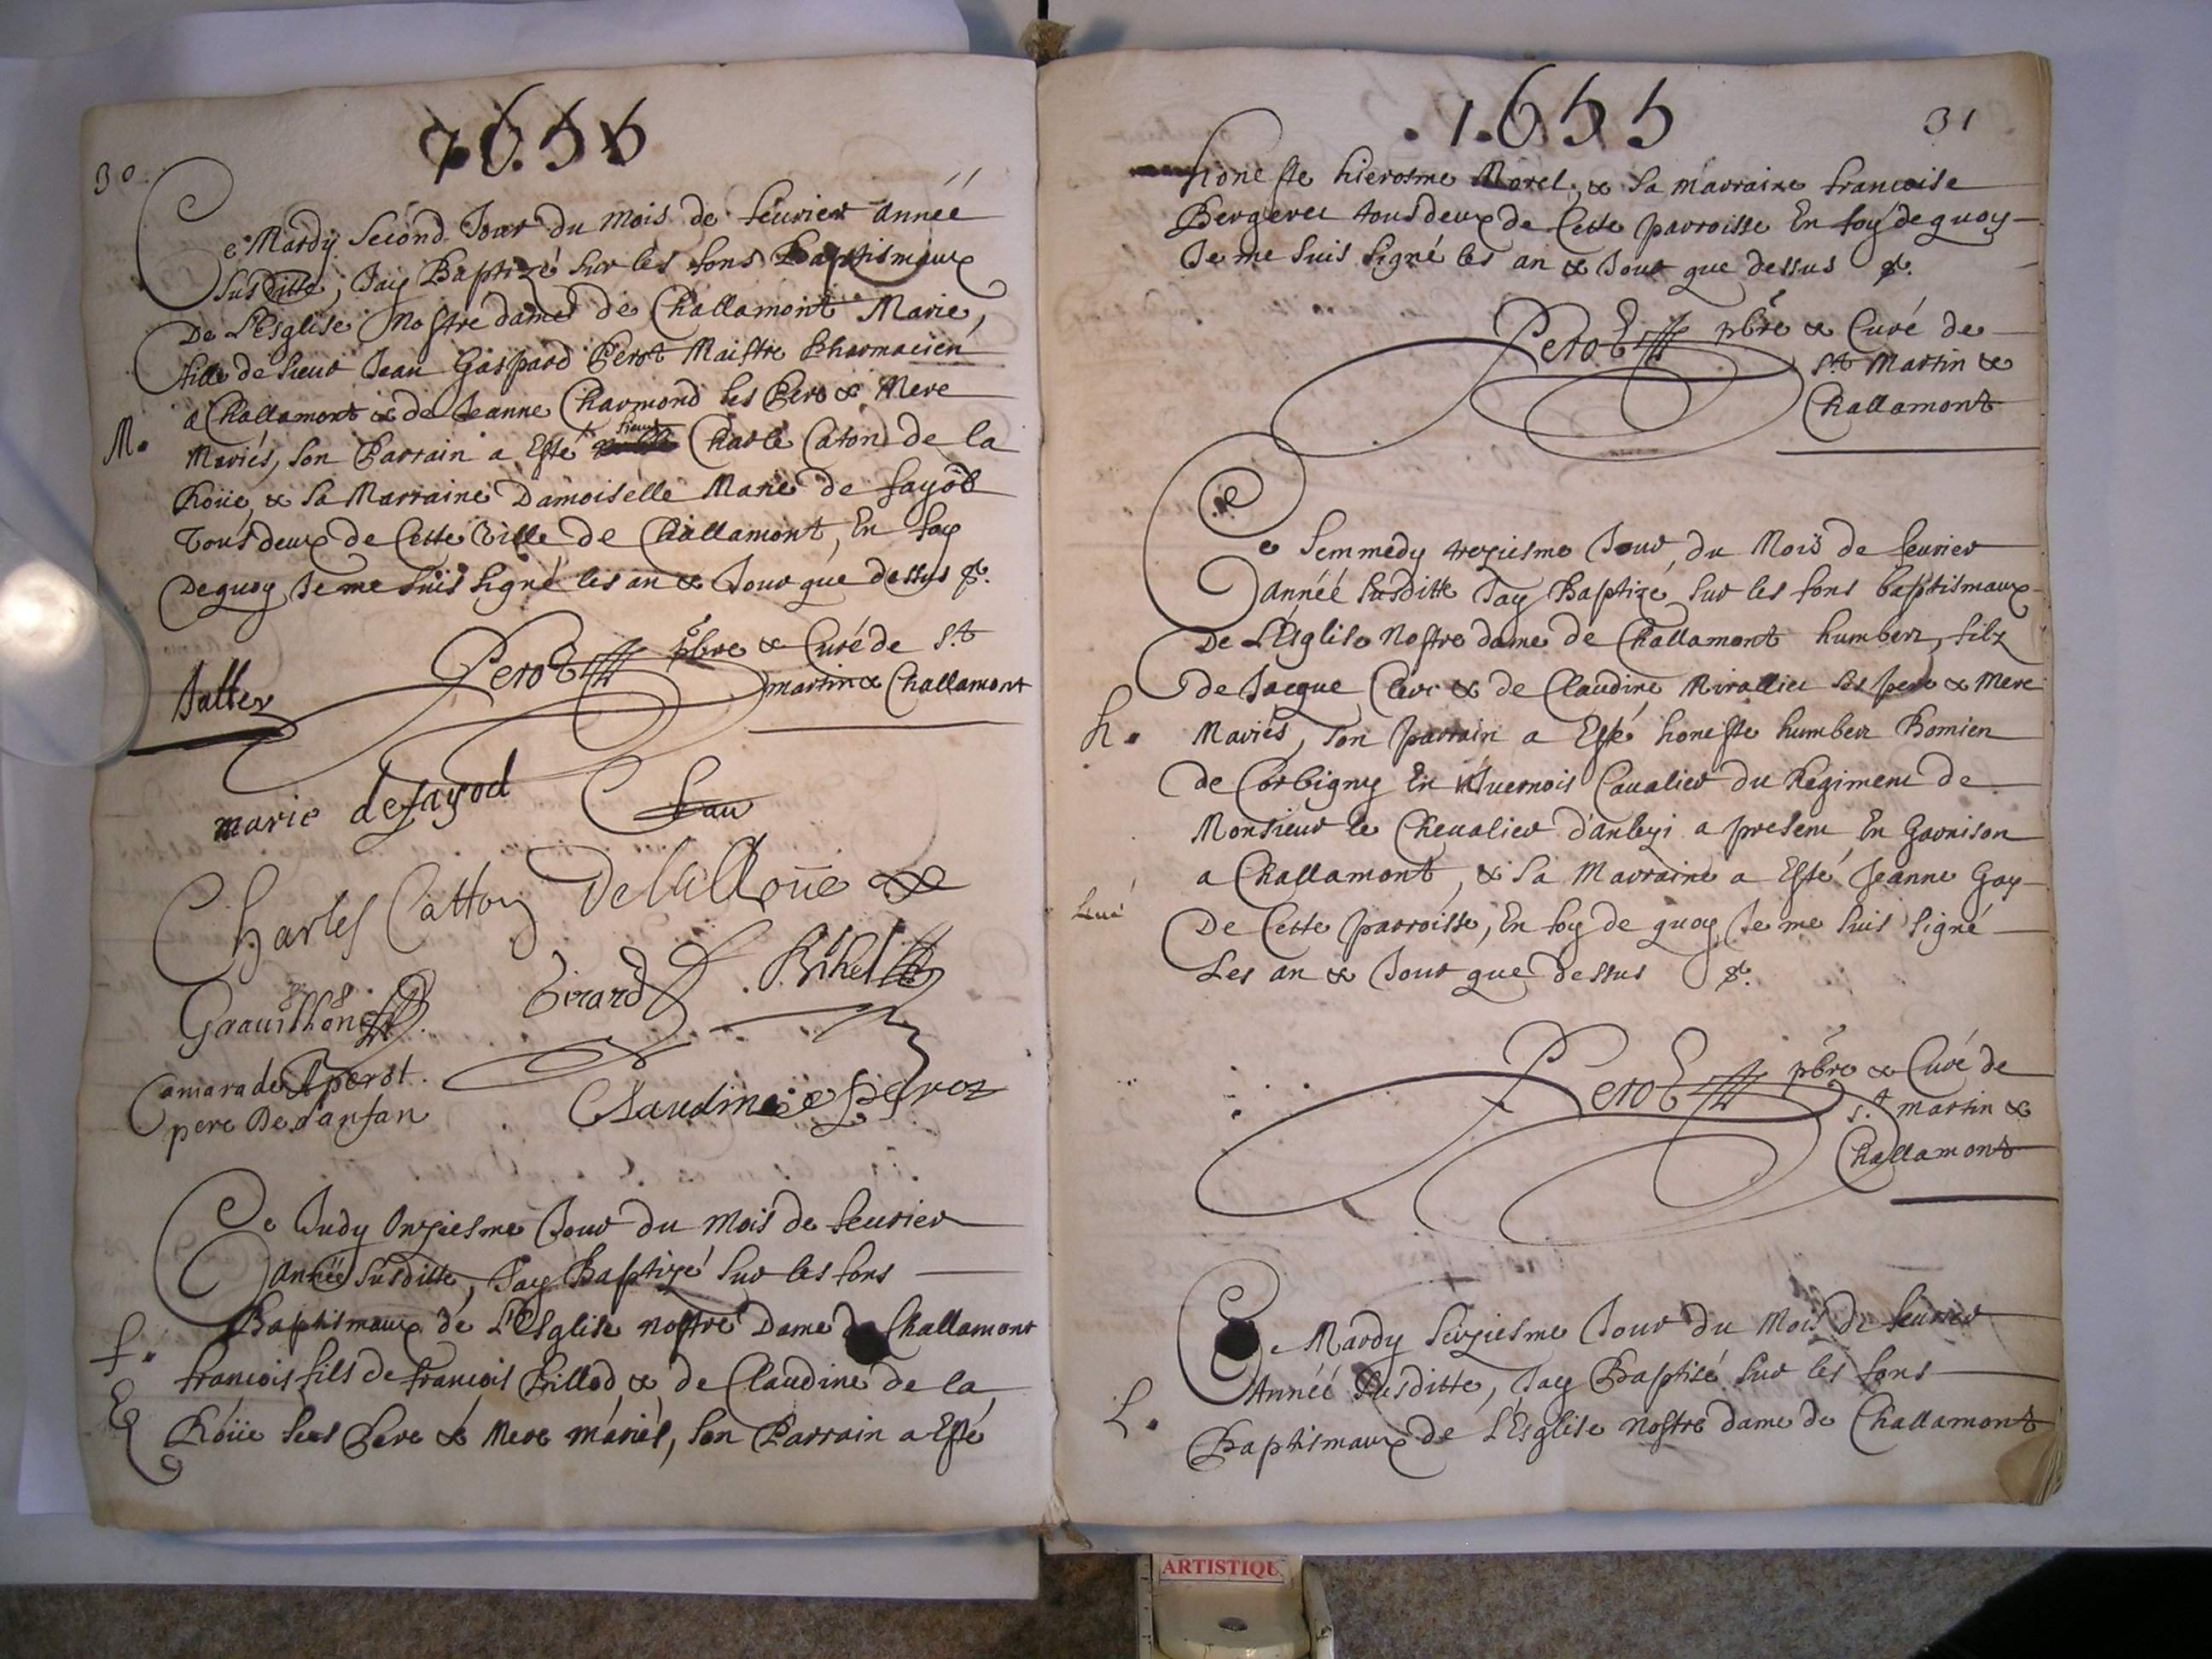 1655
30
Ce Mardy Second Jour du mois de feurier année
Susditte, Jay Baptizé sur les fons Baptismaux
De L'Esglise Nostre dame de Challamont Marie,
fille de Sieur Jean Gaspard Perot Maistre Pharmacien
a Challamont & de Jeanne Charmond ses Pere & Mere
M.
Mariés, son Parrain a Esté sieur Charle Caton de la
Roüe, & sa Marraine Damoiselle Marie de fayod
Tous deux de Cette Ville de Challamont, En foy
Dequoy Je me suis signé les an & Jour que dessus &.
Perot pbre & Curé de St
martin & Challamont
marie de fayod
Charles Catton De la Roüe
Grauilhon Girard
Camarade Aperot
pere De Lanfan
Claudine perot
Ce Judy Onziesme Jour du mois de feurier
année susditte, Jay Baptizé sur les fons
Baptismaux de L'Esglise nostre Dame de Challamont
f.
francois fils de francois Brillod & de Claudine de la
Roüe ses Pere & Mere mariés, son Parrain a Esté
1655
31
honeste hierosme Morel, & sa marraine francoise
Bergeret tous deux de Cette parroisse En foy de quoy
Je me suis signé les an & Jour que dessus &.
Perot pbre & Curé de
St Martin &
Challamont
Ce Semmedy treziesme Jour, du Mois de feurier
année susditte Jay Baptizé sur les fons baptismaux
De L'Esglise Nostre dame de Challamont humbert, filz
de Jacque Clerc & de Claudine Miralliet ses pere & Mere
h.
Mariés, son parrain a Esté honeste humbert Romien
de Corbigny En Niuernois Caualier du Regiment de
Monsieur le Cheualier d'anleyi a present En Garnison
a Challamont, & sa Marraine a Esté Jeanne Gay
De Cette parroisse, En foy de quoy Je me suis signé
Les an & Jour que dessus &.
Perot pbre & Curé de
St martin &
Challamont
Ce Mardy seiziesme Jour du Mois de feurier
Année susditte, Jay Baptisé sur les fons
L.
Baptismaux de L'Esglise Nostre dame de Challamont
ARTISTIQU